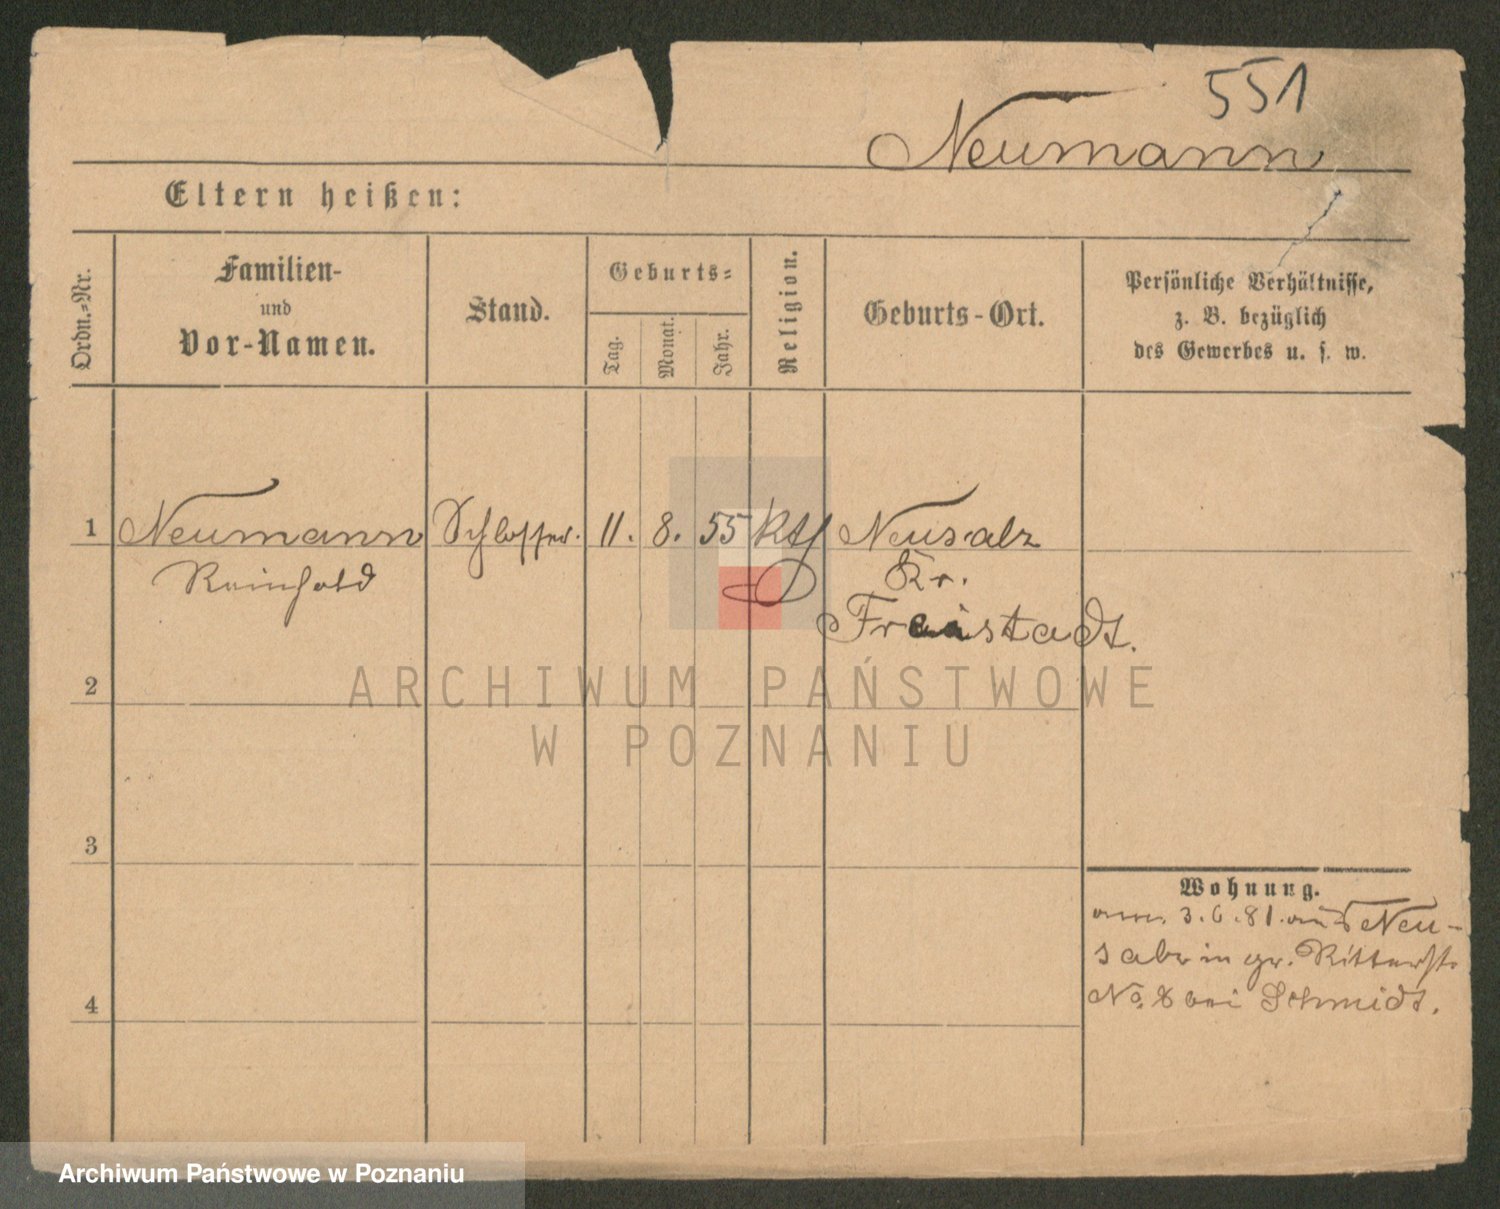 551
Neumann
Eltern heißen:
Ordn.-Nr.
Familien-
und
Vor-Namen.
Stand.
Geburts-
Tag.
Monat.
Jahr.
Religion.
Geburts-Ort.
Persönliche Verhältnisse,
z. B. bezüglich
des Gewerbes u. s. w.
1 Neumann Schlosser. 11. 8. 55 kth Neusalz
Reinhold Kr.
Freistadt.
2
3
4
Wohnung.
3. 6. 81. aus Neu-
in gr. Ritterstr.
No. 8 bei Schmidt.
ARCHIWUM PAŃSTWOWE
W POZNANIU
Archiwum Państwowe w Poznaniu